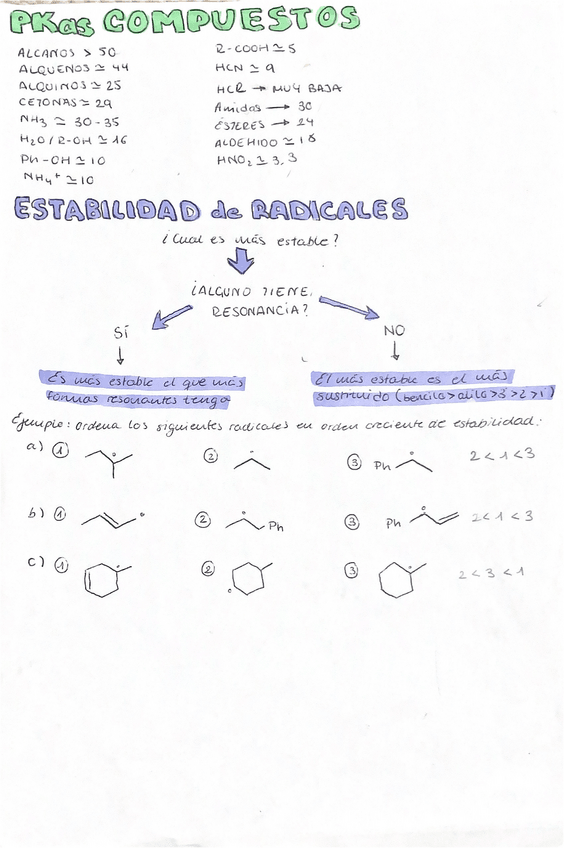 PKas COMPUESTOS
ALCANOS > 50
ALQUENOS ≃ 44
ALQUINOS ≃ 25
CETONAS ≃ 29
NH3 ≃ 30-35
H2O / R-OH ≃ 16
Ph-OH ≃ 10
NH4+ ≃ 10
R-COOH ≃ 5
HCN ≃ 9
HCl → MUY BAJA
Amidas → 30
ÉSTERES → 24
ALDEHIDO ≃ 18
HNO2 ≃ 3,3
ESTABILIDAD de RADICALES
¿Cual es más estable?
¿ALGUNO TIENE
RESONANCIA?
SÍ
NO
Es más estable el que más
formas resonantes tenga
El más estable es el más
sustituido (bencilo>alilo>3>2>1)
Ejemplo: ordena los siguientes radicales en orden creciente de estabilidad:
a) ① ② ③ Ph 2<1<3
b) ① ② Ph ③ Ph 2<1<3
c) ① ② ③ 2<3<1